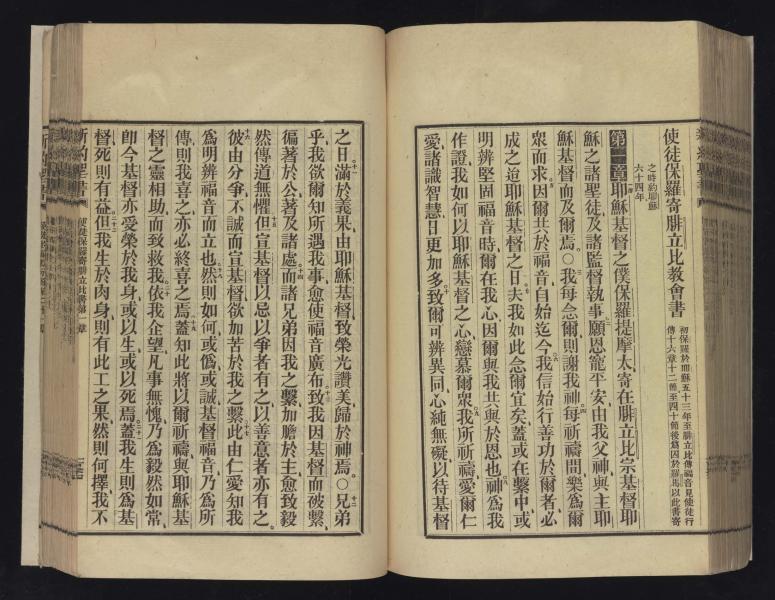 使徒保羅寄腓立比教會書
初保羅於耶穌五十三年至腓立比傳福音見使徒行
傳十六章十二節至四十節後爲囚於羅馬以此書寄
之時約耶穌
六十四年
第一章耶穌基督之僕保羅提摩太寄在腓立比宗基督耶
穌之諸聖徒及諸監督執事願恩寵平安由我父神與主耶
穌基督而及爾焉○我每念爾則謝我神每祈禱間樂爲爾
衆而求因爾共於福音自始迄今我信始行善功於爾者必
成之迨耶穌基督之日夫我如此念爾宜矣蓋或在繫中或
明辨堅固福音時爾在我心因爾與我共與於恩也神爲我
作證我如何以耶穌基督之心戀慕爾衆我所祈禱愛爾仁
愛諸識智慧日更加多致爾可辨異同心純無礙以待基督
之日滿於義果由耶穌基督致榮光讚美歸於神焉○兄弟
乎我欲爾知所遇我事愈使福音廣布致我因基督而破繫
徧著於公著及諸處而諸兄弟因我之繫加膽於主愈致毅
然傳道無懼但宣基督以忌以爭者有之以善意者亦有之
彼由分爭不誠而宣基督欲加苦於我之繫此由仁愛知我
爲明辨福音而立也然則如何或僞或誠基督福音乃爲所
傳則我喜之亦必終喜之焉蓋知此將以爾祈禱與耶穌基
督之靈相助而致救我依我企望凡事無愧乃爲毅然如常
即今基督亦愛榮於我身或以生或以死焉蓋我生則爲基
督死則有益但我生於肉身則有此工之果然則何擇我不
新約聖書
使徒保羅寄腓立比書第一章